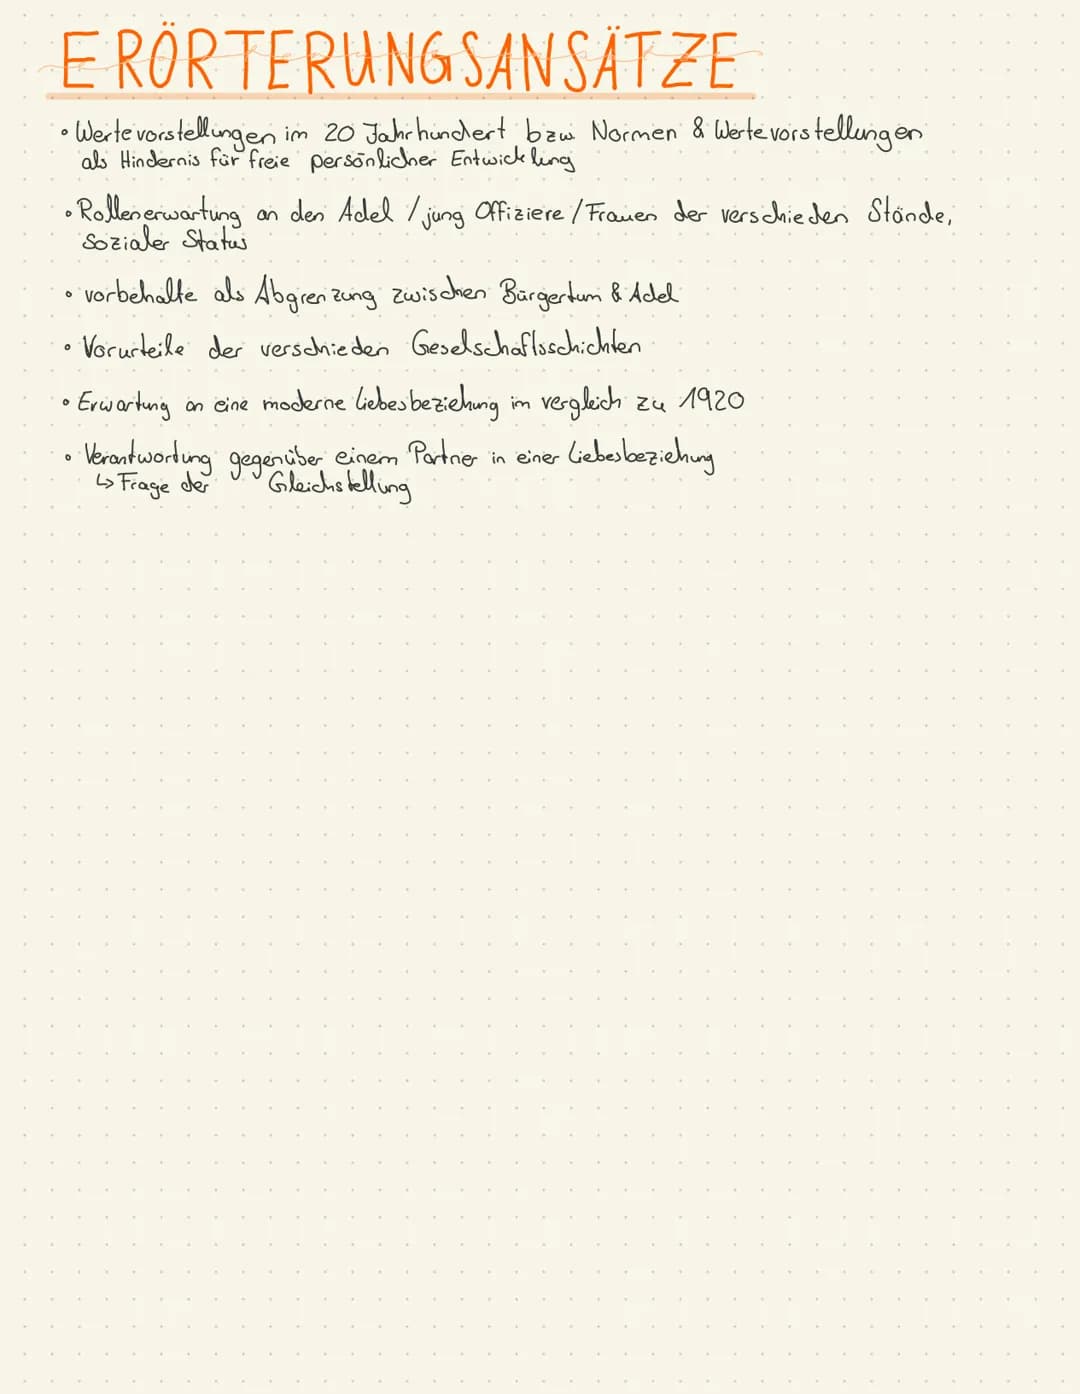 ERÖRTERUNGSANSÄTZE
• Wertevorstellungen im 20 Jahrhundert bzw Normen & Wertevorstellungen
als Hindernis für freie persönlicher Entwicklung
• Rollenerwartung an den Adel / jung Offiziere / Frauen der verschieden Stände,
sozialer Status
• vorbehalte als Abgrenzung zwischen Bürgertum & Adel
• Vorurteile der verschieden Geselschaftsschichten
• Erwartung an eine moderne Liebesbeziehung im vergleich zu 1920
• Verantwortung gegenüber einem Partner in einer Liebesbeziehung
↳ Frage der Gleichstellung